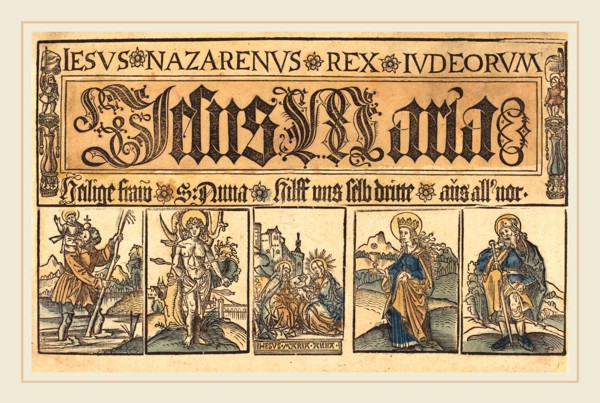 IESVS NAZARENVS REX IVDEORVM
Jesus Maria
Heilige fraw S: Anna hilff vns selb dritte auſs all' not.
IHESVS · MARIA · ANNA ·